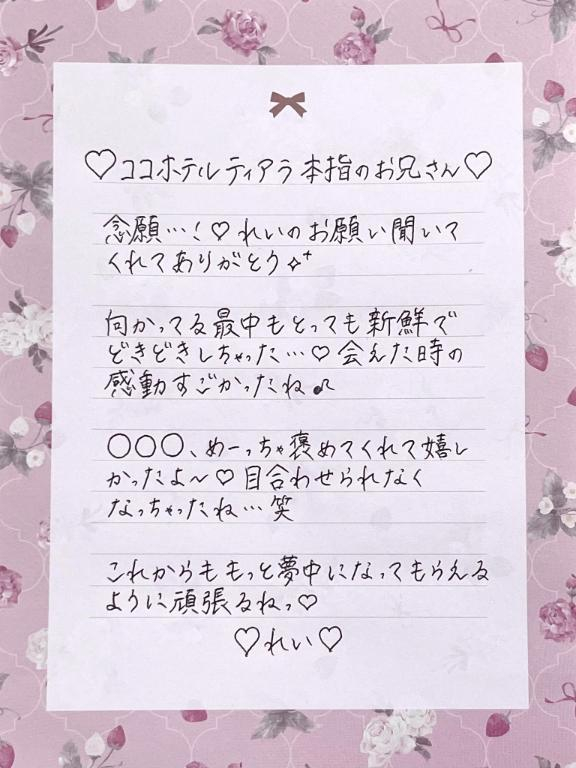 ♡ココホテルティアラ 本指のお兄さん♡
念願…!♡れいのお願い聞いて
くれてありがとう✧⁺
向かってる最中もとっても新鮮で
どきどきしちゃった…♡会えた時の
感動すごかったね♪
○○○、めーっちゃ褒めてくれて嬉し
かったよ〜♡目合わせられなく
なっちゃったね…笑
これからももっと夢中になってもらえる
ように頑張るねっ♡
♡れい♡